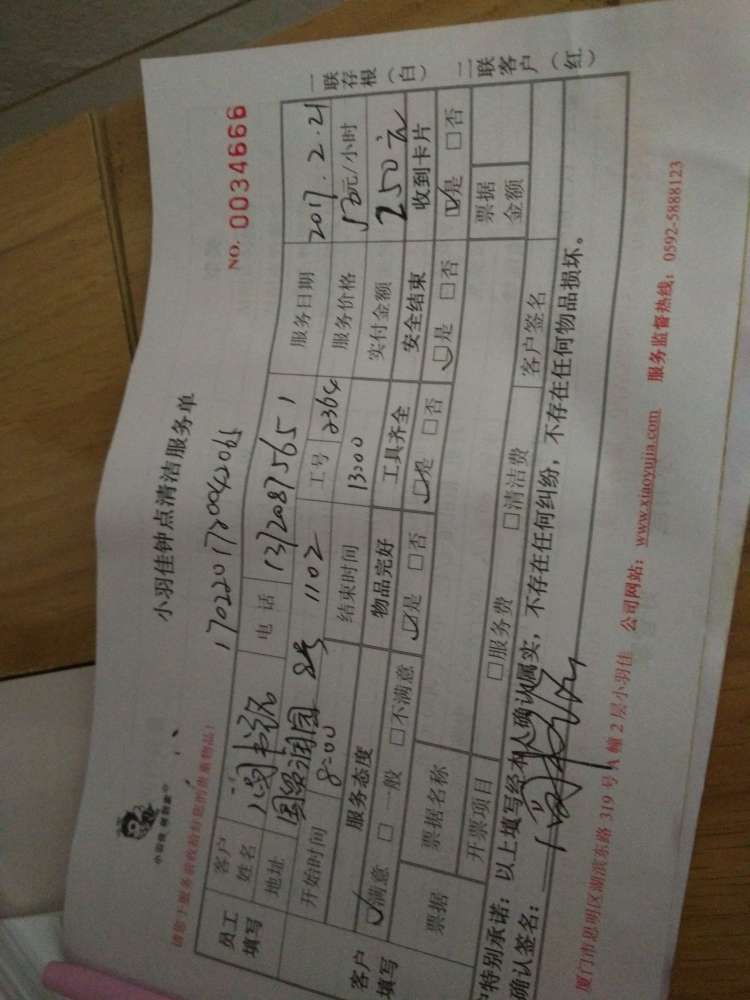 小羽佳钟点清洁服务单
NO. 0034666
170220172004206
请您于服务前收拾好您的贵重物品!
员工填写 客户姓名 电话 服务日期 2017.2.21
地址 国贸润园 1102 工号 2364 服务价格 50元/小时
开始时间 8:00 结束时间 13:00 实付金额 250元
客户填写 服务态度 物品完好 工具齐全 安全结束 收到卡片
☑满意 □一般 □不满意 ☑是 □否 ☑是 □否 ☑是 □否 ☑是 □否
票据 票据名称 票据金额
开票项目 □服务费 □清洁费 客户签名
特别承诺:以上填写经本人确认属实,不存在任何纠纷,不存在任何物品损坏。
确认签名:
厦门市思明区湖滨东路 319 号 A 幢 2 层小羽佳 公司网站:www.xiaoyujia.com 服务监督热线:0592-5888123
一联存根(白) 二联客户(红)